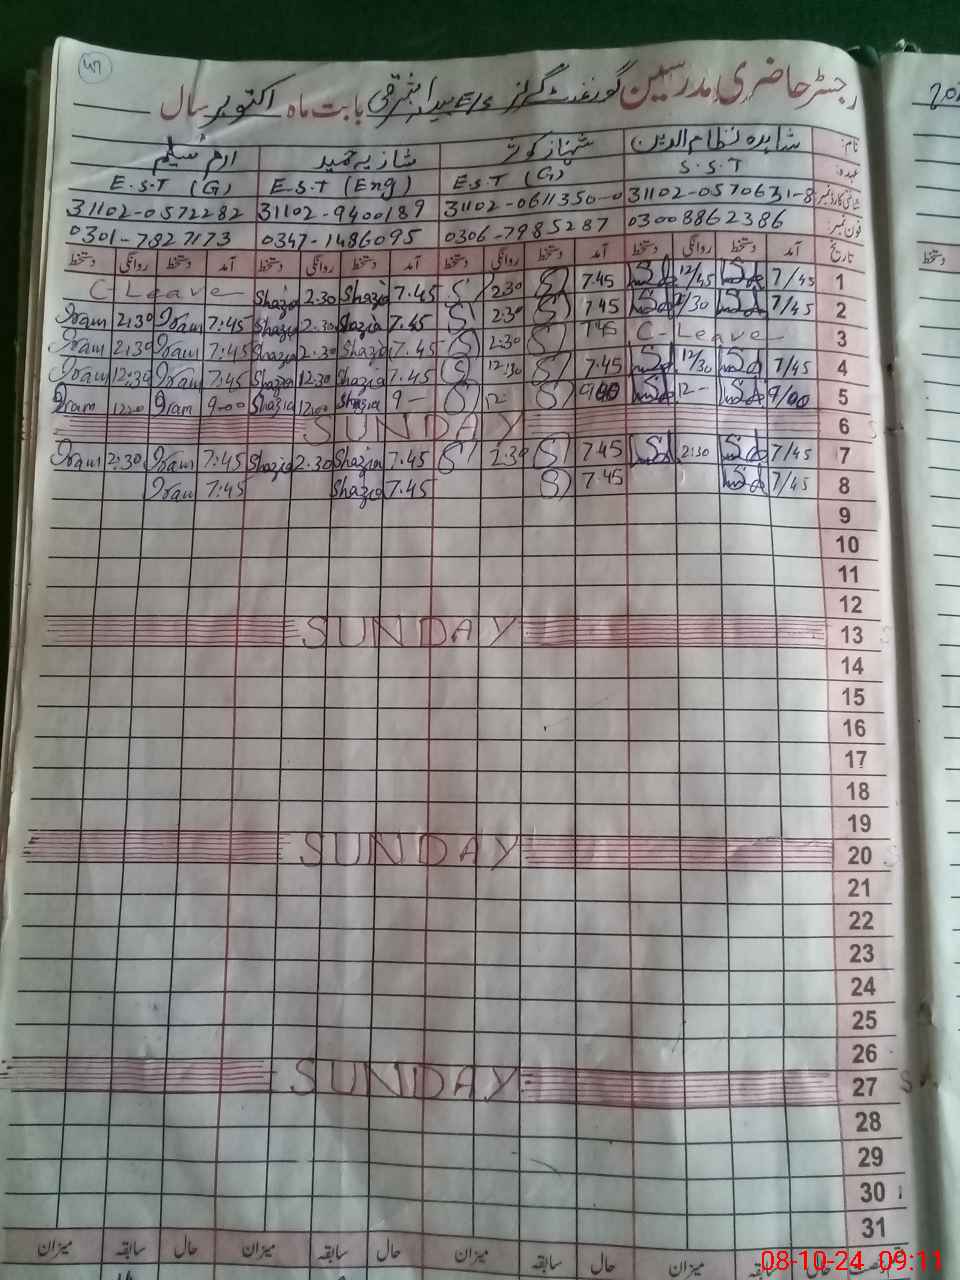 47
رجسٹر حاضری مدرسین گورنمنٹ گرلز E/s بابت ماہ اکتوبر سال
نام: شاہدہ نظام الدین شہناز کوثر شازیہ حمید ارم سلیم
عہدہ: S.S.T E.S.T (G) E.S.T (Eng) E.S.T (G)
شناختی کارڈ نمبر 31102-0570631-8 31102-0611350-0 31102-9400189 31102-0572282
فون نمبر: 03008862386 0306-7985287 0347-1486095 0301-7827173
تاریخ آمد دستخط روانگی دستخط آمد دستخط روانگی دستخط آمد دستخط روانگی دستخط آمد دستخط روانگی دستخط
1 7/45 12/45 7.45 2:30 7.45 Shazia 2.30 Shazia C Leave
2 7/45 7.45 2:30 7.45 Shazia 2.30 Shazia 7:45 Iram 2:30 Iram
3 C-Leave 7.45 2:30 7.45 Shazia 2.30 Shazia 7:45 Iram 2:30 Iram
4 7/45 12/30 7.45 12:30 7.45 Shazia 12.30 Shazia 7:45 Iram 12:30 Iram
5 9/00 12- 9- Shazia Shazia 9-00 Iram Iram
6 SUNDAY
7 7/45 2:30 7.45 2:30 7.45 Shazia 2.30 Shazia 7:45 Iram 2:30 Iram
8 7/45 7.45 7.45 Shazia 7:45 Iram
9
10
11
12
13 SUNDAY
14
15
16
17
18
19
20 SUNDAY
21
22
23
24
25
26
27 SUNDAY
28
29
30
31
حال سابقہ میزان حال سابقہ میزان حال سابقہ میزان سابقہ میزان
08-10-24 09:11